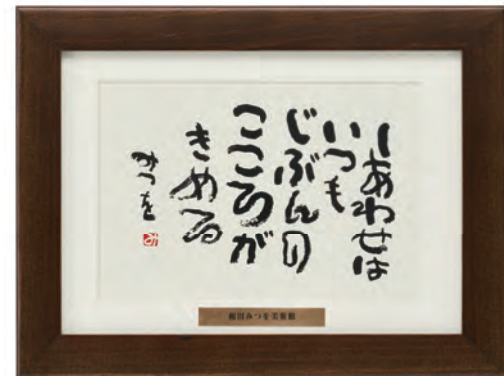 しあわせは
いつも
じぶんの
こころが
きめる
みつを
み
相田みつを美術館